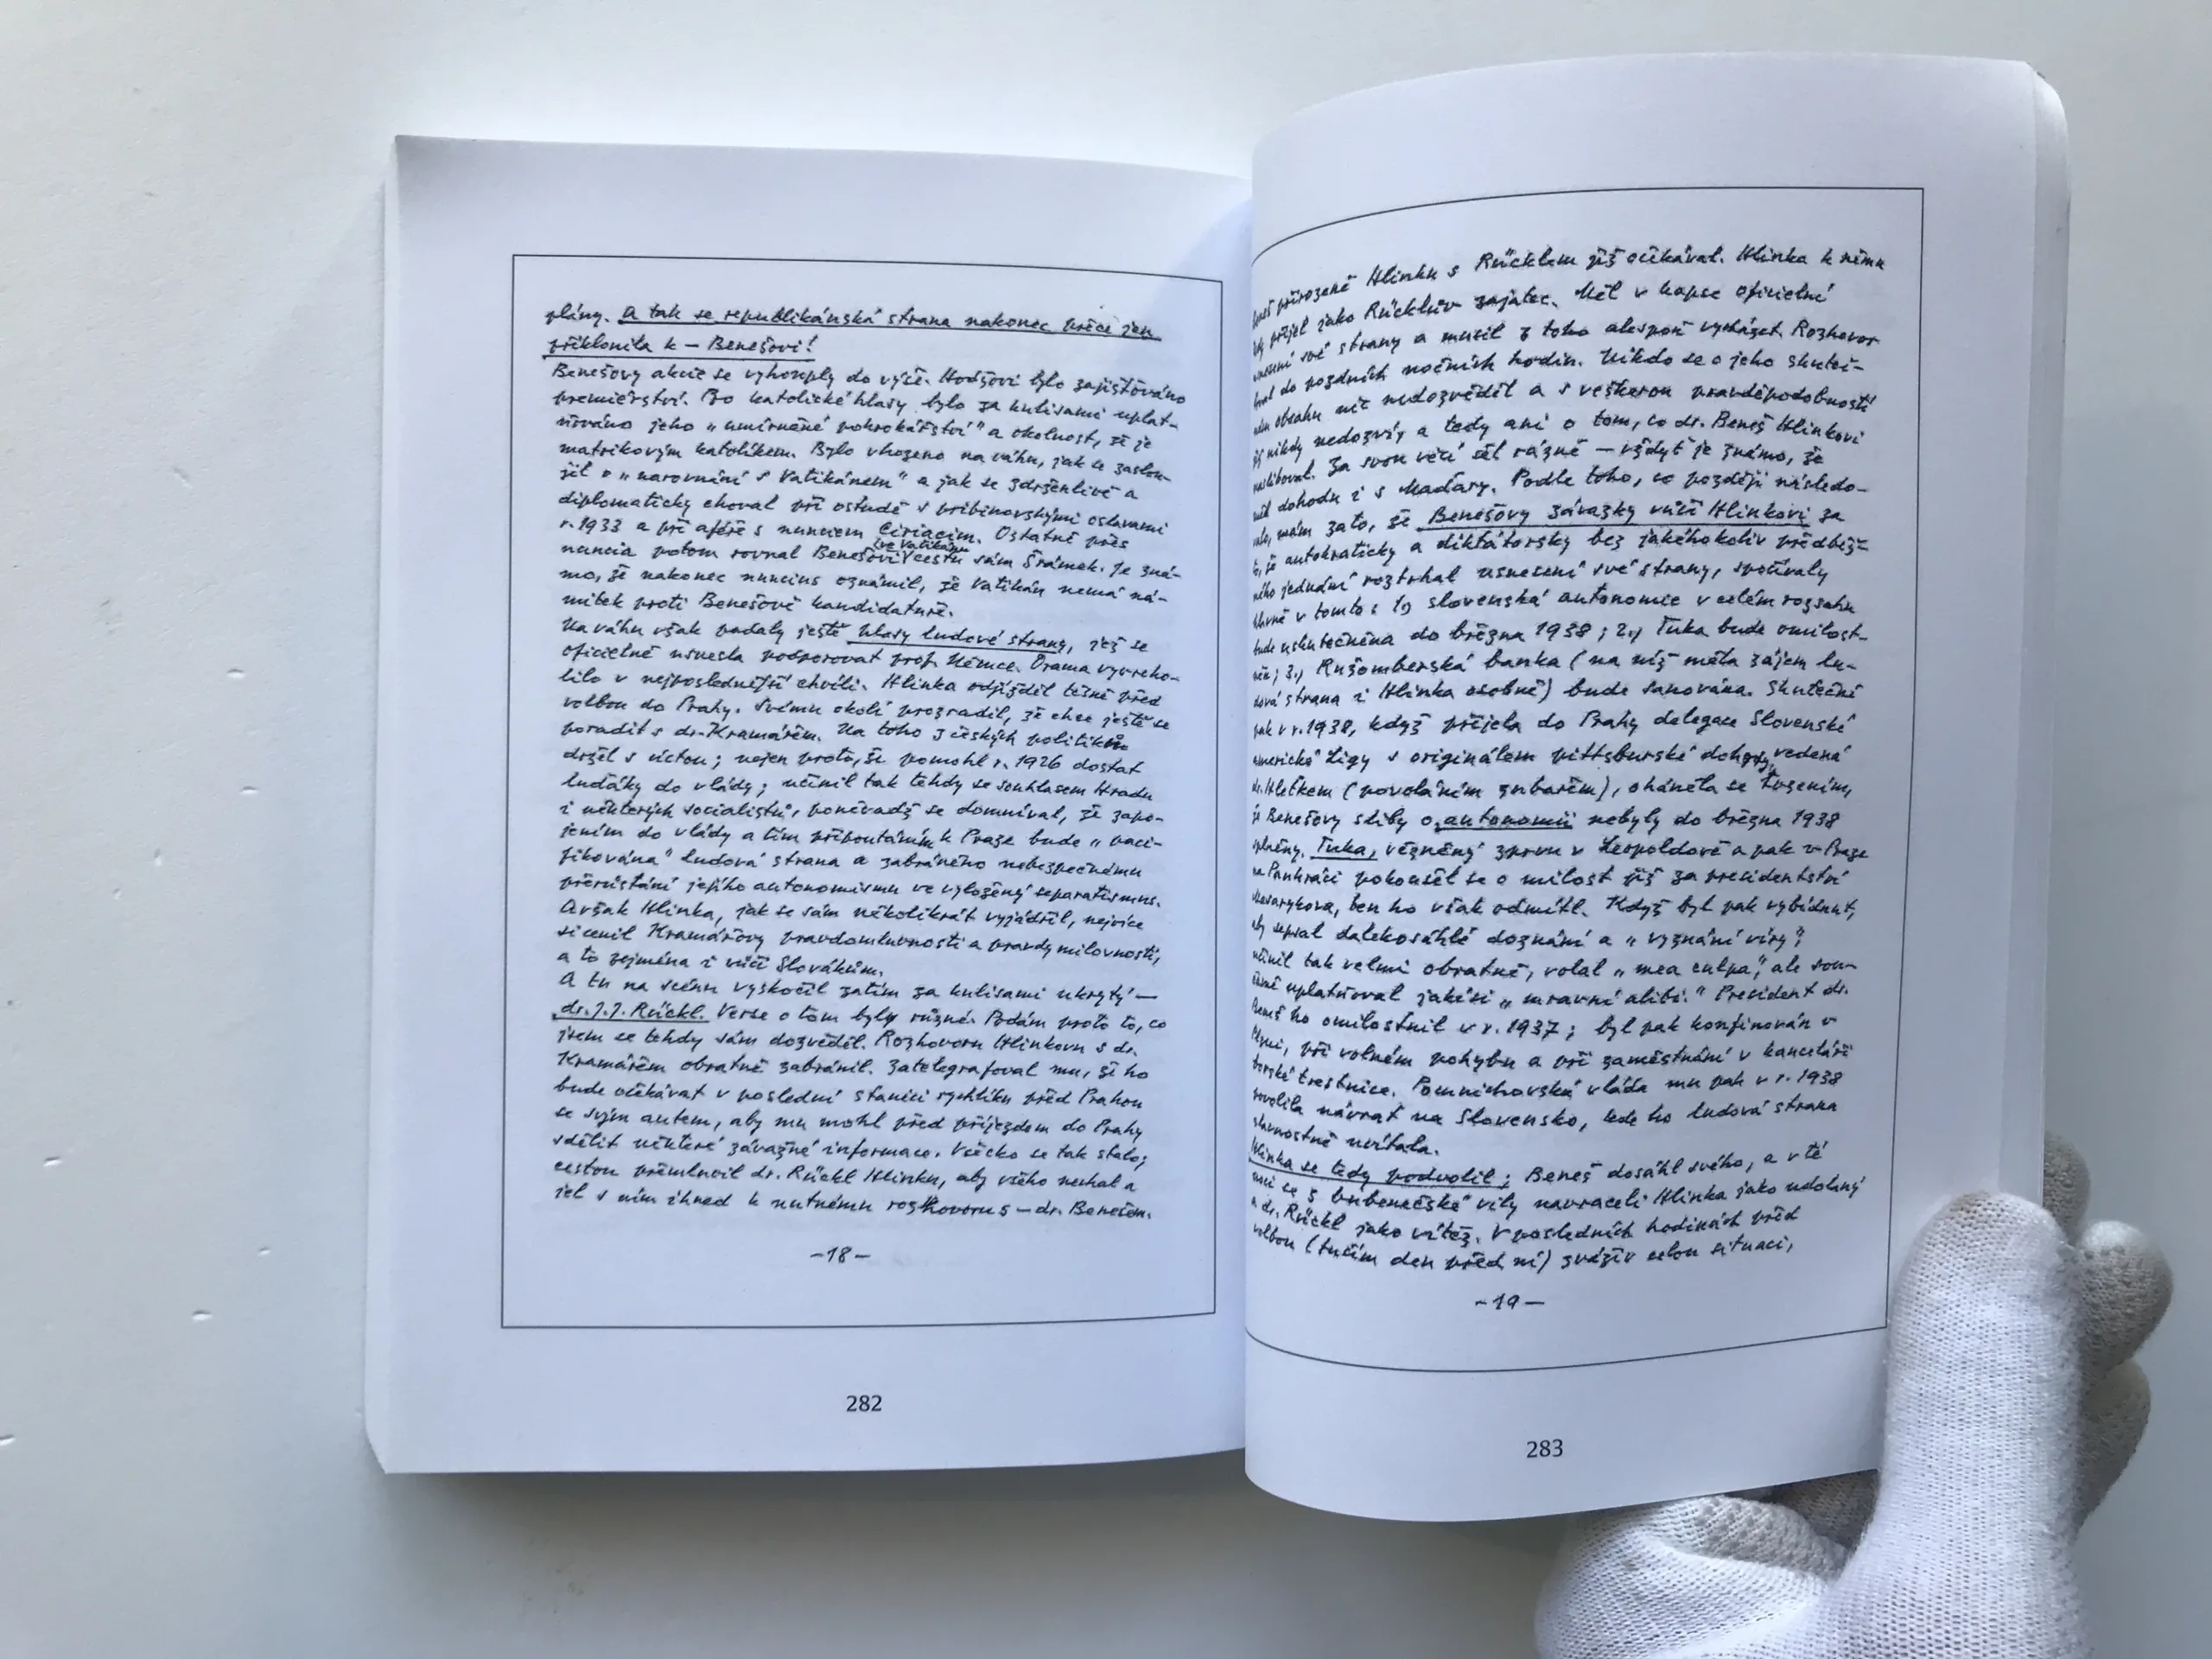 plány. A tak se republikánská strana nakonec přece jen
přiklonila k – Benešovi!
Benešovy akcie se vyhouply do výše. Hodžovi bylo zajišťováno
premiérství. Pro katolické hlasy bylo za kulisami uplat-
ňováno jeho „umírněné pokrokářství" a okolnost, že je
matrikovým katolíkem. Bylo vhozeno na váhu, jak se zaslou-
žil o „narovnání s Vatikánem" a jak se zdrženlivě a
diplomaticky choval při ostudě s pribinovskými oslavami
r. 1933 a při aféře s nunciem Ciriacim. Ostatně přes
nuncia potom rovnal Benešovi (ve Vatikánu) cestu sám Šrámek. Je zná-
mo, že nakonec nuncius oznámil, že Vatikán nemá ná-
mitek proti Benešově kandidatuře.
Na váhu však padaly ještě hlasy ludové strany, jež se
oficielně usnesla podporovat prof. Němce. Drama vyvrcho-
lilo v nejposlednější chvíli. Hlinka odjížděl těsně před
volbou do Prahy. Svému okolí prozradil, že chce ještě se
poradit s dr. Kramářem. Na toho z českých politiků
držel s úctou; nejen proto, že pomohl r. 1926 dostat
luďáky do vlády; učinil tak tehdy se souhlasem Hradu
i některých socialistů, poněvadž se domníval, že zapo-
jením do vlády a tím připoutáním k Praze bude „paci-
fikována" ludová strana a zabráněno nebezpečnému
přerůstání jejího autonomismu ve vyložený separatismus.
Avšak Hlinka, jak se sám několikrát vyjádřil, nejvíce
si cenil Kramářovy pravdomluvnosti a pravdymilovnosti,
a to zejména i vůči Slovákům.
A tu na scénu vyskočil zatím za kulisami ukrytý –
dr. J. J. Rückl. Verse o tom byly různé. Podám proto to, co
jsem se tehdy sám dozvěděl. Rozhovoru Hlinkovu s dr.
Kramářem obratně zabránil. Zatelegrafoval mu, že ho
bude očekávat v poslední stanici rychlíku před Prahou
se svým autem, aby mu mohl před příjezdem do Prahy
sdělit některé závažné informace. Všecko se tak stalo;
cestou přemluvil dr. Rückl Hlinku, aby všeho nechal a
jel s ním ihned k nutnému rozhovoru s – dr. Benešem.
–18–
282
přirozeně Hlinku s Rücklem již očekával. Hlinka k němu
přijel jako Rücklův zajatec. Měl v kapse oficielní
své strany a musil z toho alespoň vycházet. Rozhovor
do pozdních nočních hodin. Nikdo se o jeho skuteč-
obsahu nic nedozvěděl a s veškerou pravděpodobností
nikdy nedozví, a tedy ani o tom, co dr. Beneš Hlinkovi
nasliboval. Za svou věcí šel rázně – vždyť je známo, že
dohodu i s Maďary. Podle toho, co později následo-
valo, mám za to, že Benešovy závazky vůči Hlinkovi za
to, že autokraticky a diktátorsky bez jakéhokoliv předběž-
ného jednání roztrhal usnesení své strany, spočívaly
hlavně v tomto: 1) slovenská autonomie v celém rozsahu
bude uskutečněna do března 1938; 2.) Tuka bude omilost-
něn; 3.) Ružomberská banka (na níž měla zájem lu-
dová strana i Hlinka osobně) bude sanována. Skutečně
pak v r. 1938, když přijela do Prahy delegace Slovenské
americké Ligy s originálem pittsburské dohody, vedená
dr. Hletkem (povoláním zubařem), oháněla se tvrzením,
že Benešovy sliby o autonomii nebyly do března 1938
splněny. Tuka, vězněný zprvu v Leopoldově a pak v Praze
na Pankráci pokoušel se o milost již za presidentství
Masarykova, ten ho však odmítl. Když byl pak vybídnut,
aby sepsal dalekosáhlé doznání a „vyznání víry",
učinil tak velmi obratně, volal „mea culpa", ale sou-
časně uplatňoval jakési „mravní alibi." President dr.
Beneš ho omilostnil v r. 1937; byl pak konfinován v
Plzni, při volném pohybu a při zaměstnání v kanceláři
borské trestnice. Pomnichovská vláda mu pak v r. 1938
povolila návrat na Slovensko, kde ho ludová strana
slavnostně uvítala.
Hlinka se tedy podvolil; Beneš dosáhl svého, a v té
se z bubenečské vily navraceli Hlinka jako udolaný
a dr. Rückl jako vítěz. V posledních hodinách před
volbou (tuším den před ní) zváživ celou situaci,
–19–
283